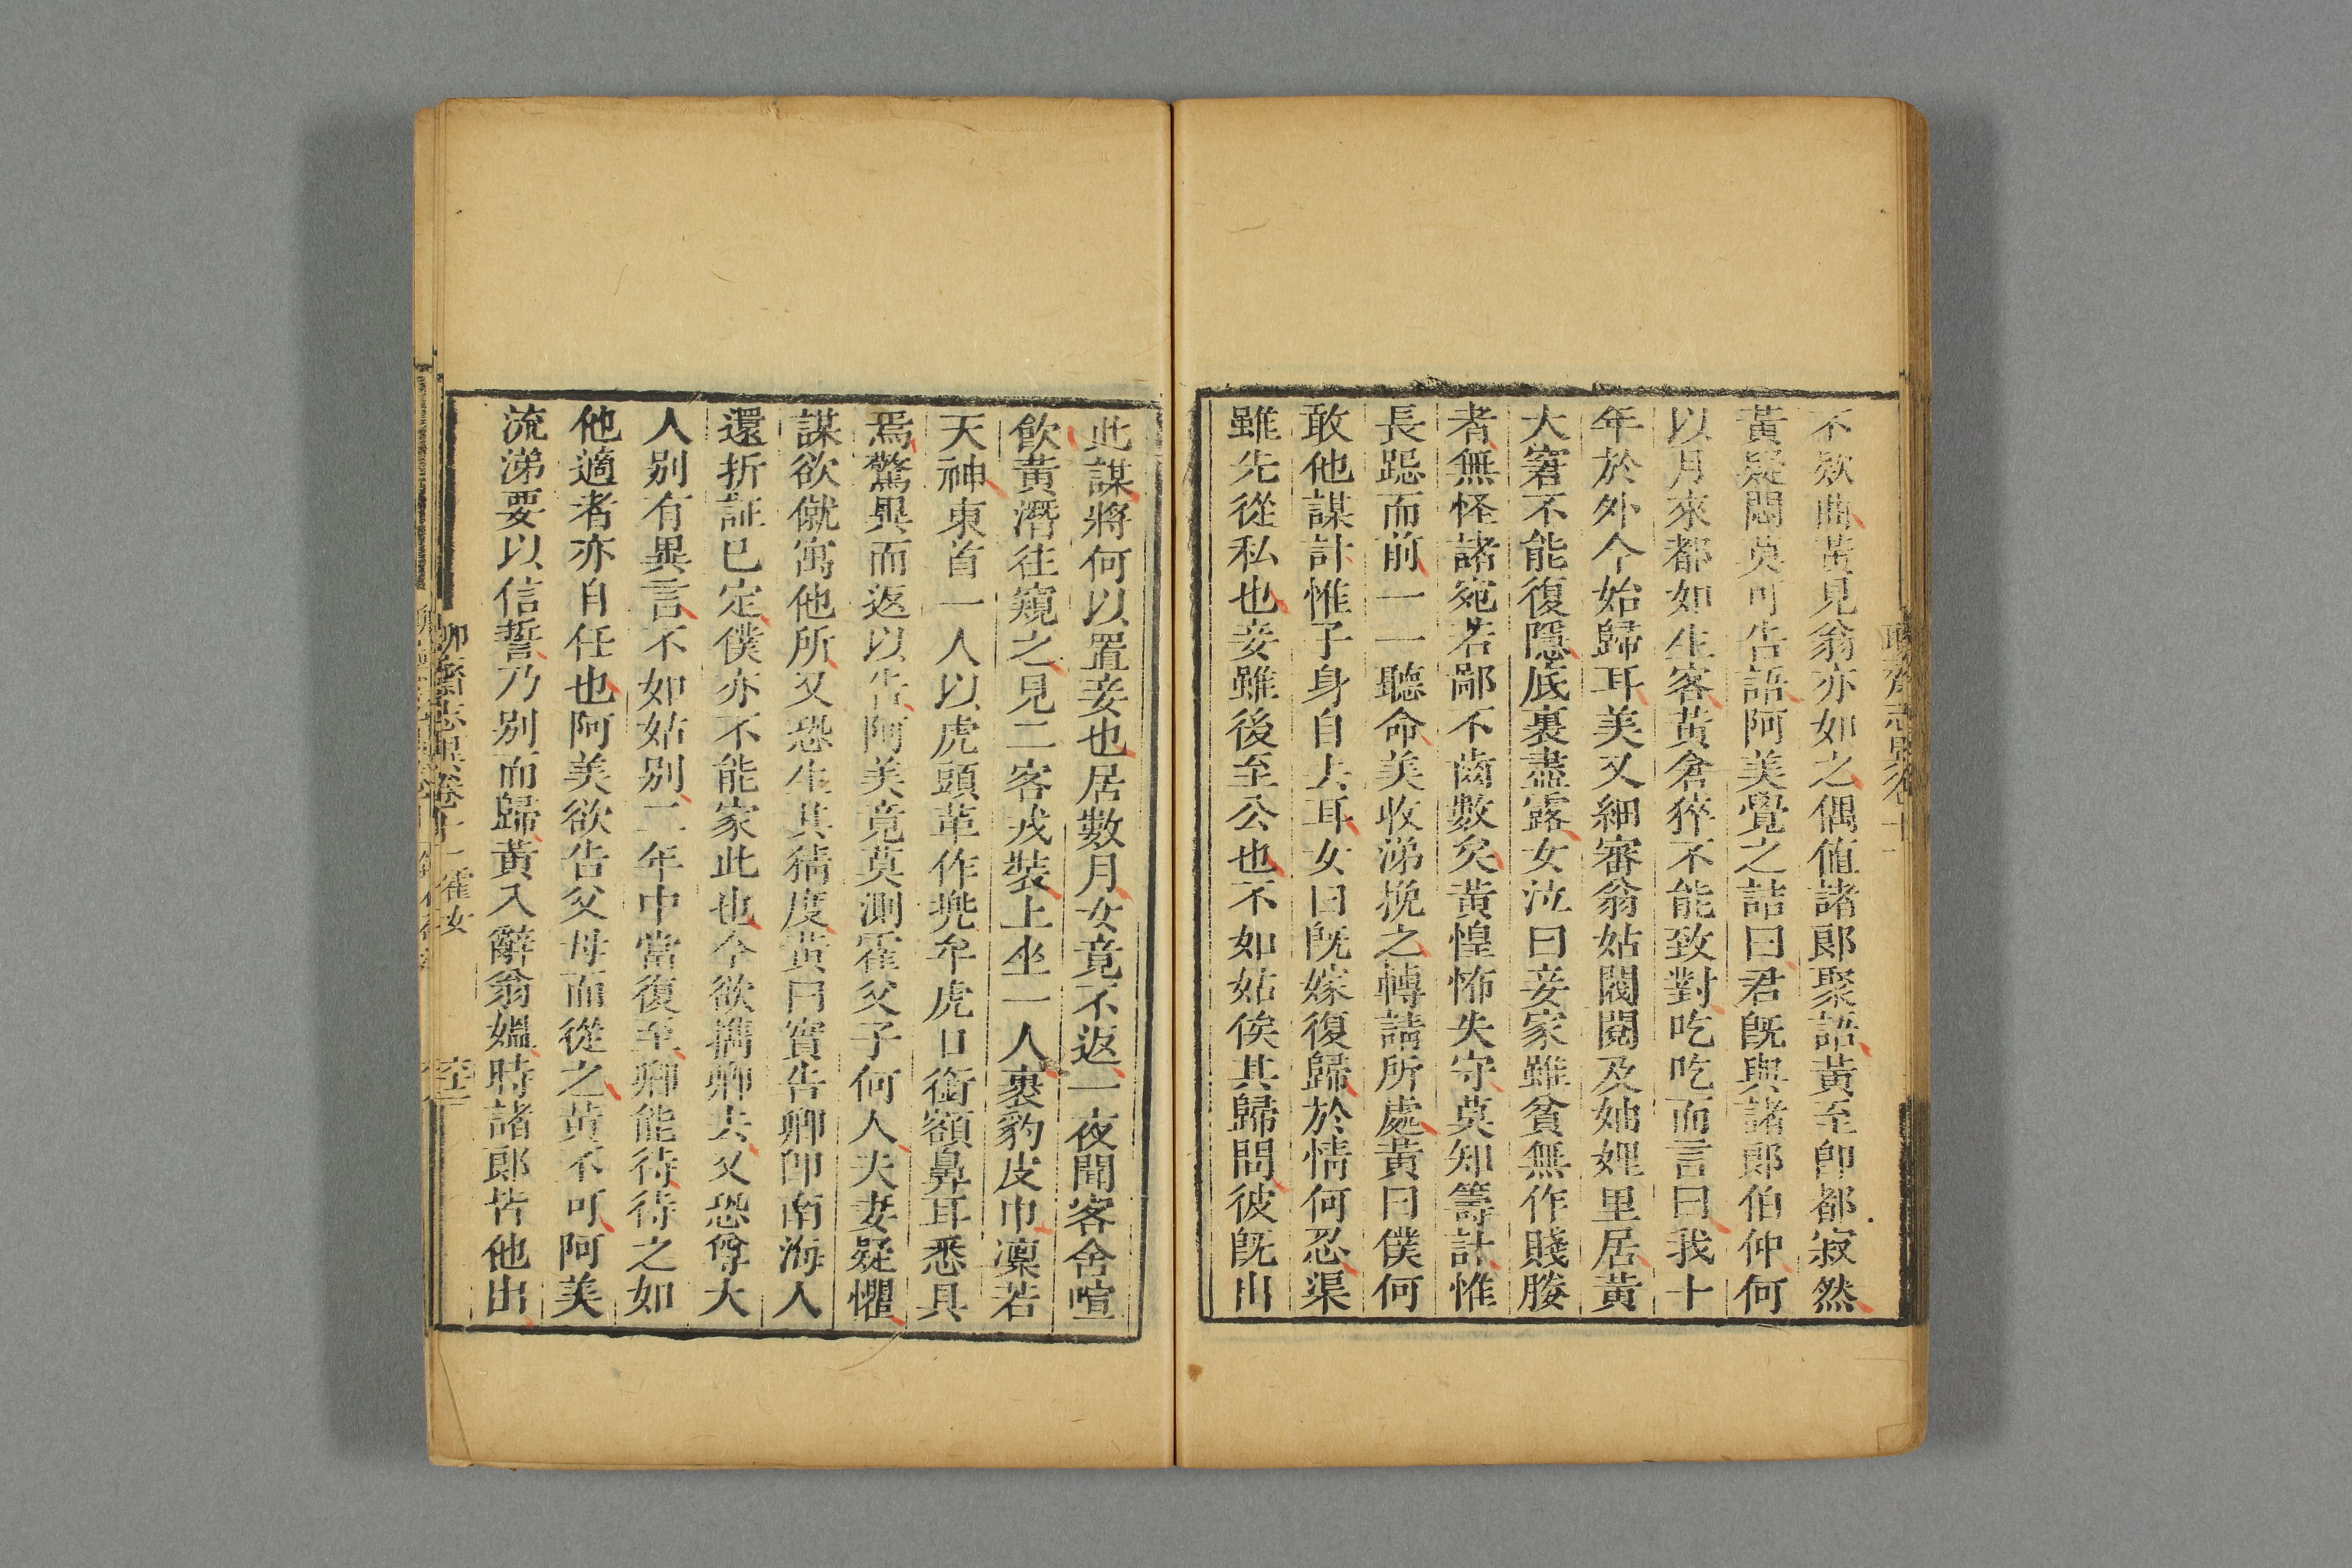 不欵曲黃見翁亦如之偶値諸郎聚語黃至卽都寂然
黃疑悶莫可告語阿美覺之詰曰君旣與諸郎伯仲何
以月來都如生客黃倉猝不能致對吃吃而言曰我十
年於外今始歸耳美又細審翁姑閥閱及妯娌里居黃
大窘不能復隱底裏盡露女泣曰妾家雖貧無作賤媵
者無怪諸宛若鄙不齒數矣黃惶怖失守莫知籌計惟
長跽而前一一聽命美收涕挽之轉請所處黃曰僕何
敢他謀計惟孑身自去耳女曰旣嫁復歸於情何忍渠
雖先從私也妾雖後至公也不如姑俟其歸問彼旣出
此謀將何以置妾也居數月女竟不返一夜聞客舍喧
飲黃潛往窺之見二客戎裝上坐一人裹豹皮巾凜若
天神東首一人以虎頭革作兠牟虎口銜額鼻耳悉具
焉驚異而返以告阿美竟莫測霍父子何人夫妻疑懼
謀欲僦寓他所又恐生其猜度黃曰實告卿卽南海人
還折証已定僕亦不能家此也今欲擕卿去又恐尊大
人別有異言不如姑別二年中當復至卿能待待之如
他適者亦自任也阿美欲告父母而從之黃不可阿美
流涕要以信誓乃別而歸黃入辭翁媼時諸郎皆他出
聊齋志異卷十一霍女